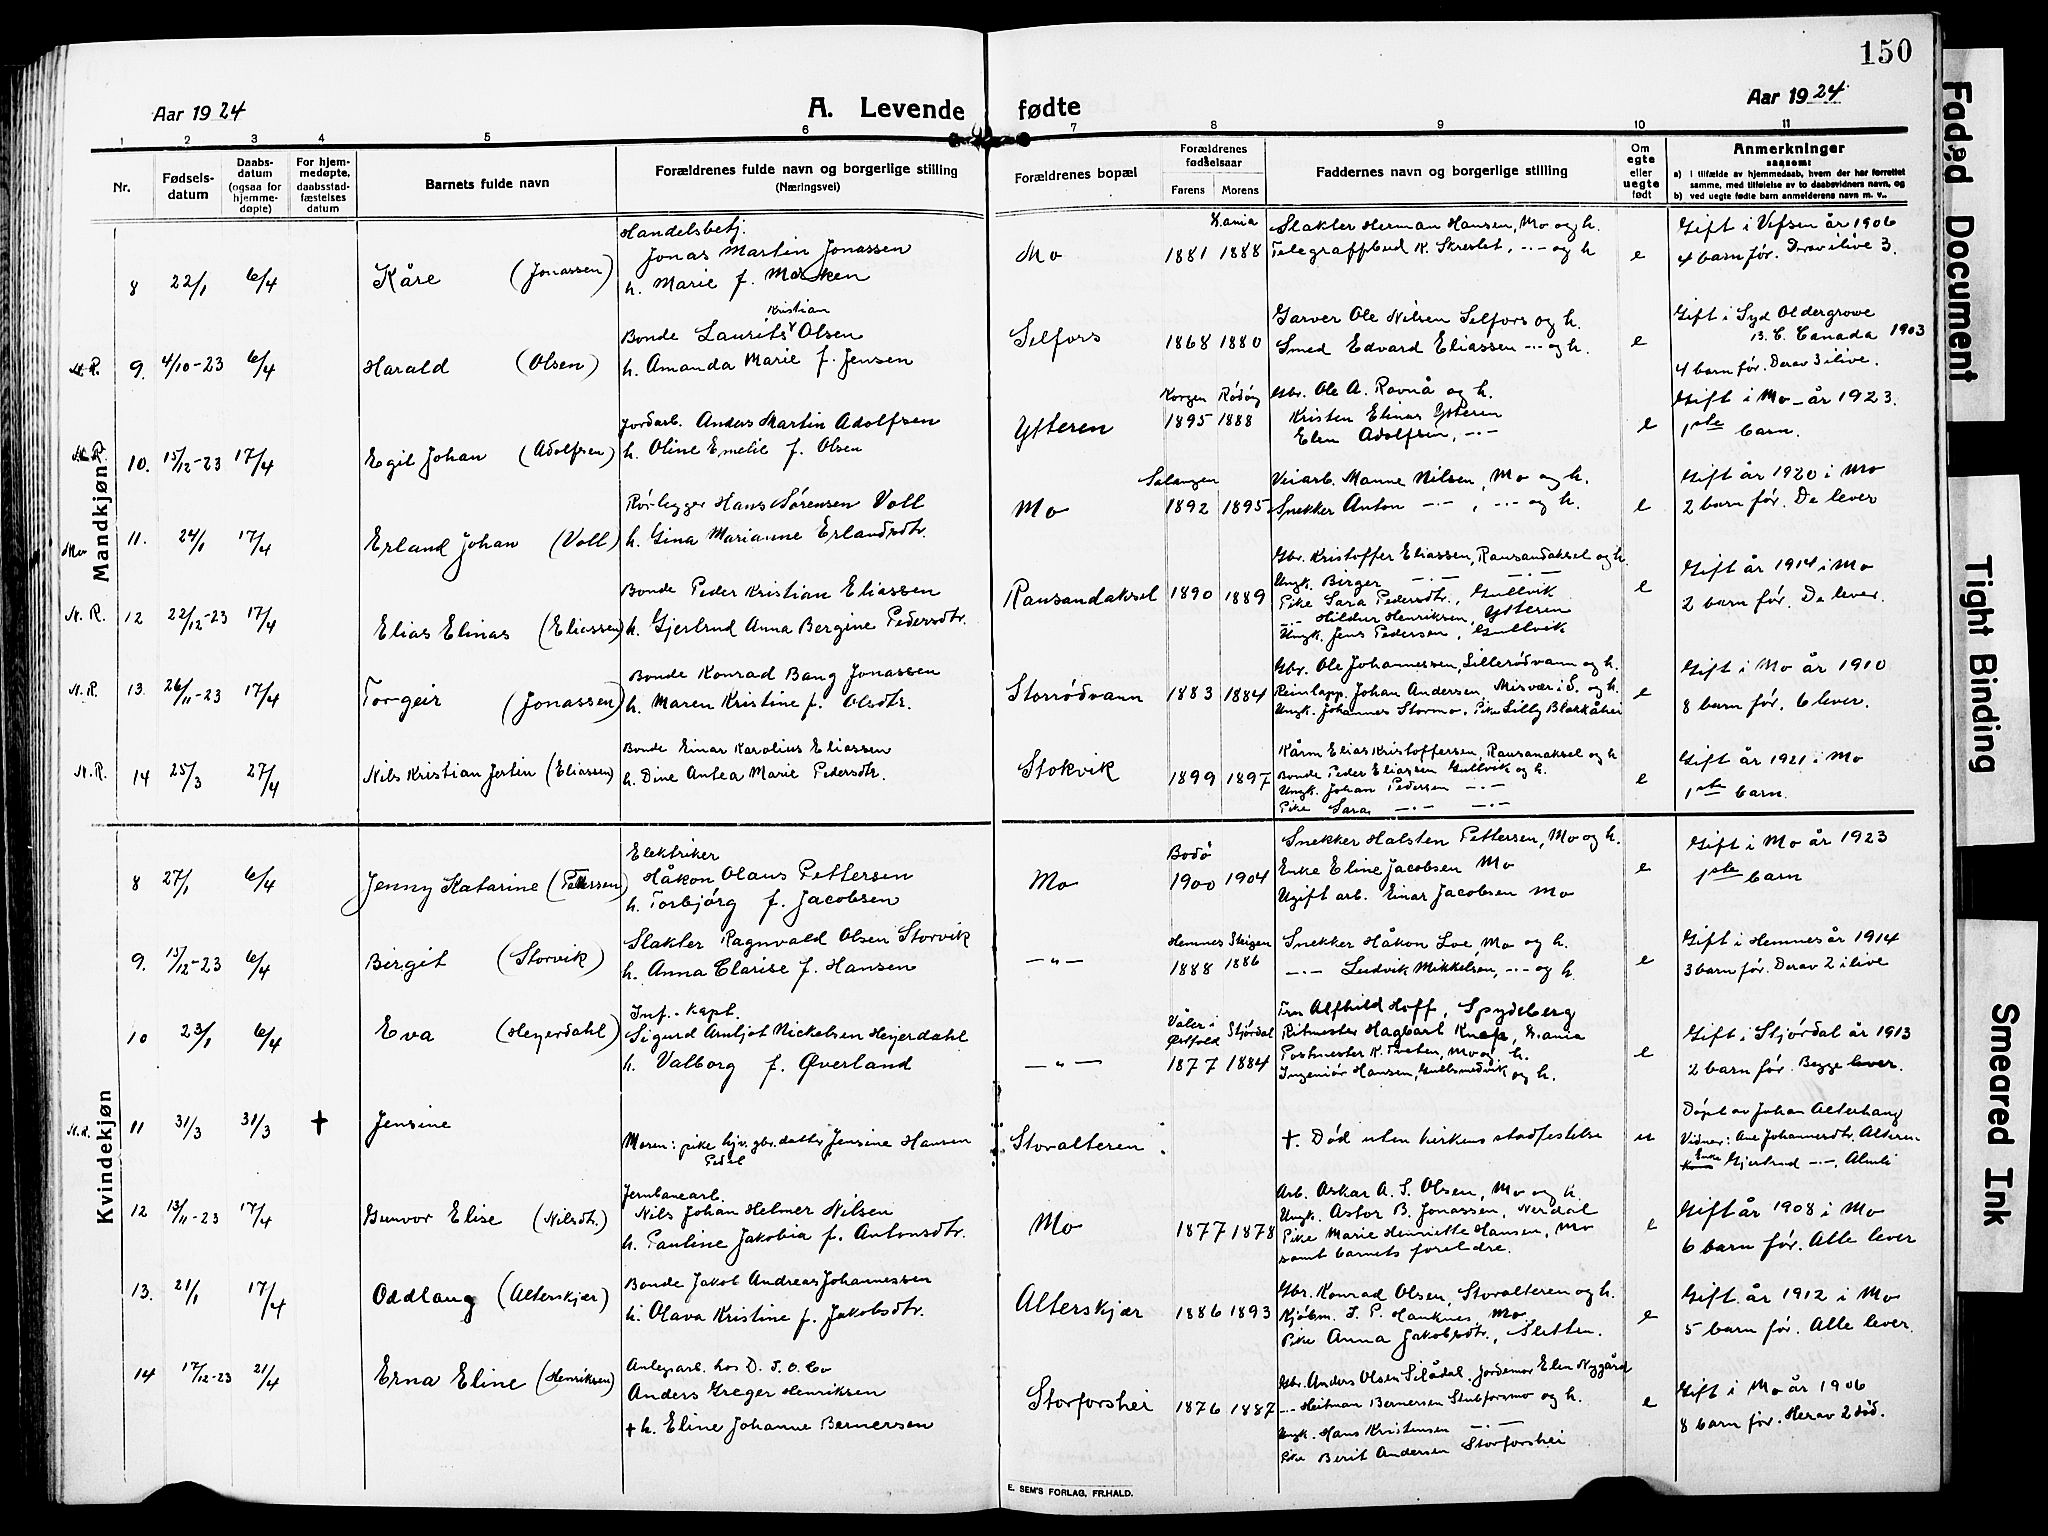 150
Aar 1924
A. Levende fødte
Aar 1924
1 2 3 4 5 6 7 8 9 10 11
Nr.
Fødsels-datum
Daabs-datum (ogsaa for hjemme-døpte)
For hjem-medøpte, daabsstad-fæstelses datum
Barnets fulde navn
Forældrenes fulde navn og borgerlige stilling (Næringsvei)
Forældrenes bopæl
Forældrenes fødselsaar
Farens Morens
Faddernes navn og borgerlige stilling
Om egte eller uegte født
Anmerkninger
saasom:
a) i tilfælde av hjemmedaab, hvem der har forrettet samme, med tilføielse av to daabsvidners navn, og
b) ved uegte fødte barn anmelderens navn m. v..
Mandkjøn
8 22/1 6/4 Kåre (Jonassen)
Handelsbetj.
Jonas Martin Jonassen
h. Marie f. Marken
Mo
K.ania
1881 1888
Slakter Herman Hansen, Mo og h.
Telegrafbud K. Skreslet, -.- og h
e
Gift i Vefsen år 1906
4 barn før. Derav ilive 3.
N.R. 9. 4/10-23 6/4 Harald (Olsen)
Kristian
Bonde Laurits Olsen
h. Amanda Marie f. Jensen
Selfors
1868 1880
Garver Ole Nilsen Selfors og h.
Smed Edvard Eliassen -.- og h.
e
Gift i Syd Oldergrowe
B. C. Canada 1903
4 barn før. Derav 3 ilive.
N.R. 10. 15/12-23 17/4 Egil Johan (Adolfsen)
Jordarb. Anders Martin Adolfsen
h. Oline Emelie f. Olsen
Ytteren
Korgen Rødøy
1895 1888
Gbr. Ole A. Ravnå og h.
Kristen Elinas Ytteren
Elen Adolfsen, -.-
e
Gift i Mo - år 1923.
1ste barn.
Mo 11. 24/1 17/4 Erland Johan (Voll)
Rørlegger Hans Sørensen Voll
h. Gina Marianne Erlandsdtr.
Mo
Salangen
1892 1895
Veiarb. Manne Nilsen, Mo og h.
Snekker Anton -.- , -.- og h.
e
Gift år 1920 i Mo
2 barn før. De lever
N.R. 12 22/12-23 17/4 Elias Elinas (Eliassen)
Bonde Peder Kristian Eliassen
h. Gjertrud Anna Bergine Pedersdtr.
Ransandaksel 1890 1889
Gbr. Kristoffer Eliassen, Ransandaksel og h.
Ungk. Birger -.- -.-
Pike Sara Pedersdtr., Gullvik
-.- Hildur Henriksen, Ytteren
Ungk. Jens Pedersen, Gullvik
e
Gift år 1914 i Mo
2 barn før. De lever.
N.R. 13. 26/11-23 17/4 Torgeir (Jonassen)
Bonde Konrad Bang Jonassen
h. Maren Kristine f. Olsdtr.
Storrødvann 1883 1884
Gbr. Ole Johannessen, Lillerødvann og h.
Reinlapp. Johan Andersen, Misvær i S. og h.
Ungk. Johannes Stormo. Pike Lilly Blakkåhei
e
Gift i Mo år 1910
8 barn før. 6 lever.
N.R. 14 25/3 27/4 Nils Kristian Jostin (Eliassen)
Bonde Einar Karolius Eliassen
h. Dine Antea Marie Pedersdtr.
Stokvik 1899 1897
Kårm Elias Kristoffersen, Ransanaksel og h
Bonde Peder Eliassen Gullvik og h.
Ungk. Johan Pedersen -.-
Pike Sara -.- -.-
e
Gift år 1921 i Mo
1ste barn.
Kvindekjøn
8 27/1 6/4 Jenny Katarine (Pettersen)
Elektriker
Håkon Olaus Pettersen
h. Torbjørg f. Jacobsen
Mo
Bodø
1900 1904
Snekker Halsten Pettersen, Mo og h.
Enke Eline Jacobsen Mo
Ugift arb. Einar Jacobsen Mo
e
Gift i Mo år 1923
1ste barn
9. 15/12-23 6/4 Birgit (Storvik)
Slakter Ragnvald Olsen Storvik
h. Anna Clarise f. Hansen
-"-
Hemnes Steigen
1888 1886
Snekker Håkon Loe Mo og h.
-.- Ludvik Mikkelsen, -.- og h.
e
Gift i Hemnes år 1914
3 barn før. Derav 2 ilive
10 23/1 6/4 Eva (Heyerdahl)
Inf.-kapt.
Sigurd Arnljot Nickelsen Heyerdahl
h. Valborg f. Øverland
-"-
Våler i Østfold Stjørdal
1877 1884
Fru Alfhild Hoff, Spydeberg
Ritmester Hagbart Knap, K.ania
Postmester K. Tveten, Mo og h.
Ingeniør Hansen, Gullsmedvik og h.
e
Gift i Stjørdal år 1913
2 barn før. Begge lever.
N.R. 11 31/3 31/3 † Jensine
Moren: pike hjv. gbr. datter Jensine Hansen
Storalteren
†. Død uten kirkens stadfestelse
u
Døpt av Johan Alterhaug
Vidner: Ane Johannesdtr. Alteren
Enke Gjertrud -.-, Almli
12 13/11-23 17/4 Gunvor Elise (Nilsdtr.)
Jernbanearb.
Nils Johan Helmer Nilsen
h. Pauline Jakobia f. Antonsdtr.
Mo 1877 1878
Arb. Oskar A. S. Olsen, Mo og h.
Ungk. Astor B. Jonassen, Nerdal
Pike Marie Henriette Hansen, Mo
samt barnets foreldre.
e
Gift år 1908 i Mo
6 barn før. Alle lever
13. 21/1 17/4 Oddlaug (Alterskjær)
Bonde Jakob Andreas Johannessen
h. Olava Kristine f. Jakobsdtr.
Alterskjær 1886 1893
Gbr. Konrad Olsen, Storalteren og h.
Kjøbm. I. P. Hauknes, Mo
Pike Anna Jakobsdtr., Sletten.
e
Gift år 1912 i Mo
5 barn før. Alle lever.
14 17/12-23 21/4 Erna Eline (Henriksen)
Anlegsarb. hos D. I. O. Co
Anders Greger Henriksen
† h. Eline Johanne Bernersen
Storforshei 1876 1887
Gbr. Anders Olsen Silådal. Jordemor Elen Nygård
-.- Heitman Bernersen Stubforsmo og h.
Ungk. Hans Kristensen -.-
Pike Berit Andersen Storforshei
e
Gift i Mo år 1906
8 barn før. Herav 2 død.
E. SEM'S FORLAG, FR.HALD.
Faded Document
Tight Binding
Smeared Ink